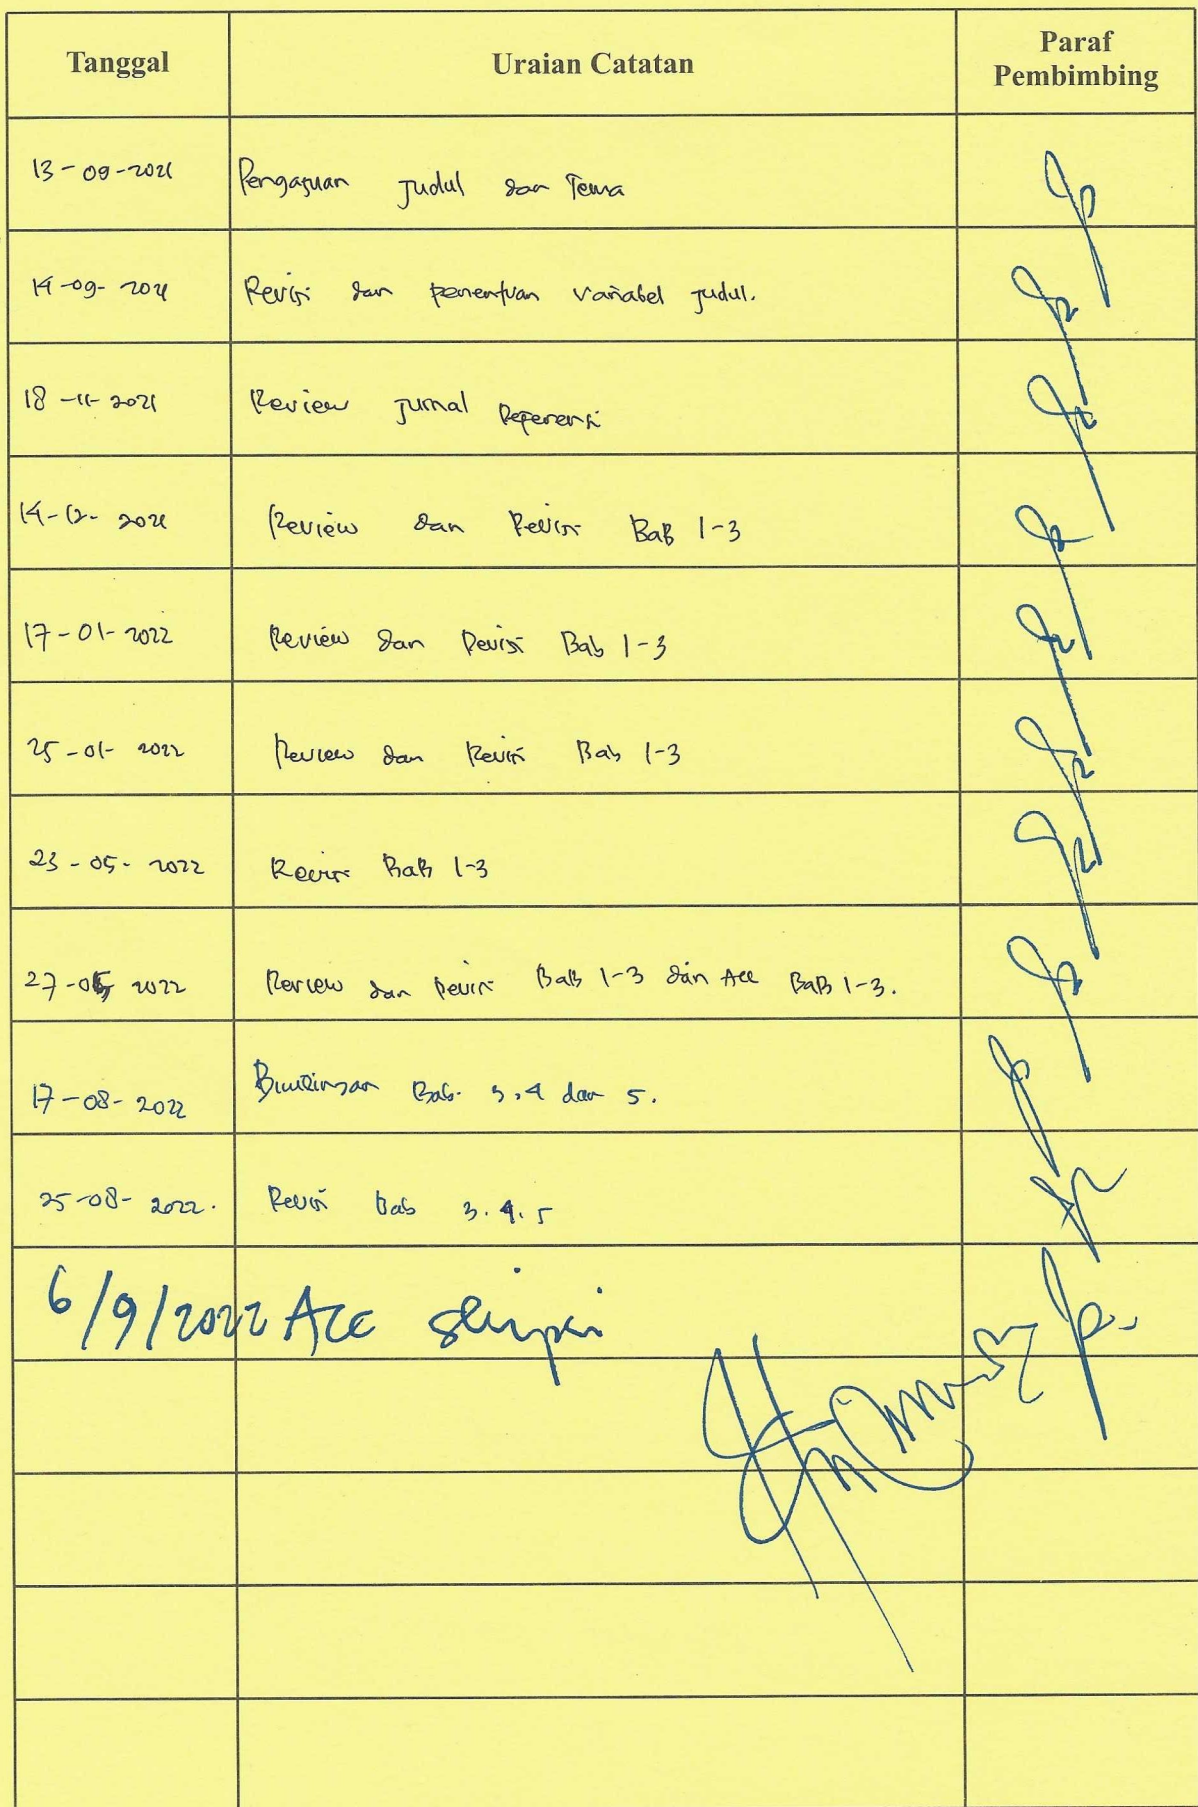 Tanggal Uraian Catatan Paraf Pembimbing
13-09-2021 Pengajuan Judul dan Tema
14-09-2021 Revisi dan penentuan variabel judul.
18-11-2021 Review jurnal Referensi
14-12-2021 Review dan Revisi BaB 1-3
17-01-2022 Review dan Revisi Bab 1-3
25-01-2022 Review dan Revisi Bab 1-3
23-05-2022 Revisi BaB 1-3
27-05 2022 Review dan Revisi BaB 1-3 dan Acc BaB 1-3.
17-08-2022 Bimbingan Bab. 3.4 dan 5.
25-08-2022. Revisi Bab 3.4.5
6/9/2022 Acc skripsi